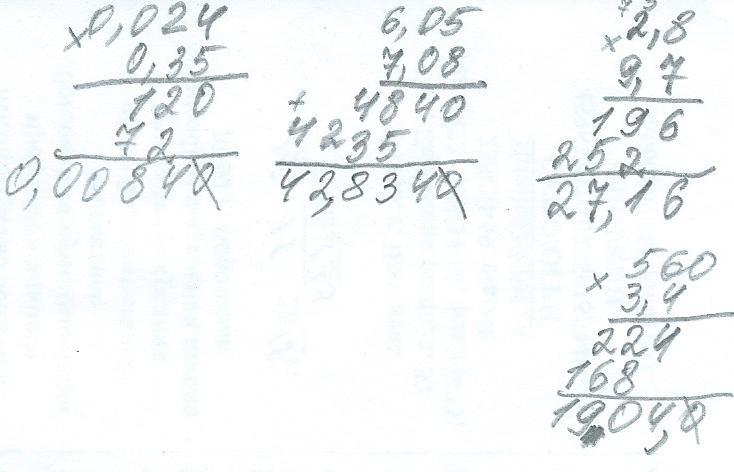 ×0,024
0,35
120
72
0,00840
6,05
7,08
+ 4840
4235
42,8340
×2,8
9,7
196
252
27,16
× 560
3,4
224
168
1904,0